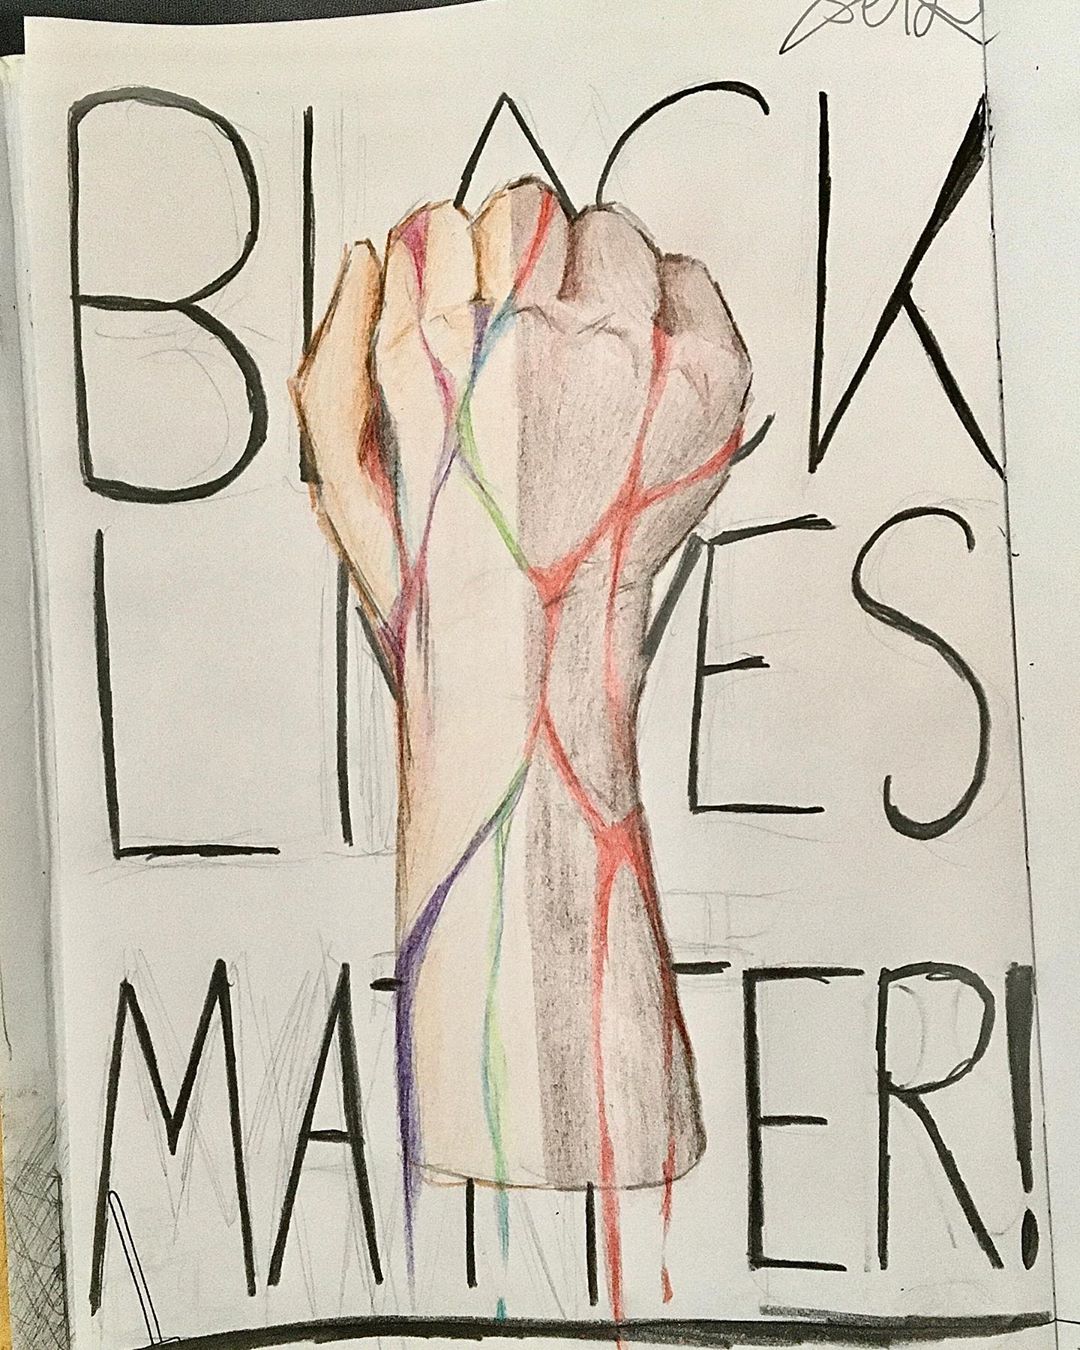 BLACK
LIVES
MATTER!